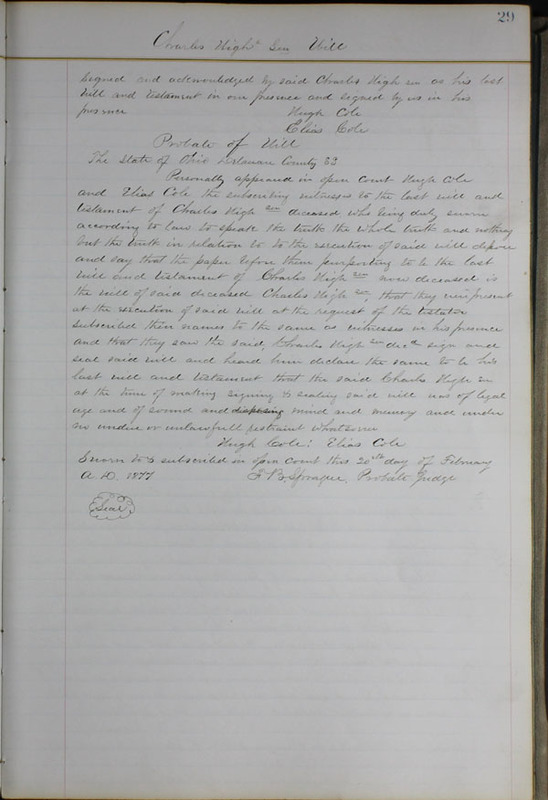 29
Charles High Sen Will
Signed and acknowledged by said Charles High sen as his last
Will and Testament in our presence and signed by us in his
presence Hugh Cole
Elias Cole
Probate of Will
The State of Ohio Delaware County SS
Personally appeared in open Court Hugh Cole
and Elias Cole the subscribing witnesses to the last will and
testament of Charles High sen deceased who being duly sworn
according to law to speak the truth the whole truth and nothing
but the truth in relation to to the execution of said will depose
and say that the paper before them purporting to be the last
will and testament of Charles High sen now deceased is
the will of said deceased Charles High sen, that they were present
at the execution of said will at the request of the testator
subscribed their names to the same as witnesses in his presence
and that they saw the said Charles High sen decd sign and
seal said will and heard him declare the same to be his
last will and testament that the said Charles High sen
at the time of making signing & sealing said will was of legal
age and of sound and disposing mind and memory and under
no undue or unlawfull restraint whatsoever
Hugh Cole: Elias Cole
Sworn to & subscribed in open Court this 20th day of February
A.D. 1877 F B Sprague, Probate Judge
Seal